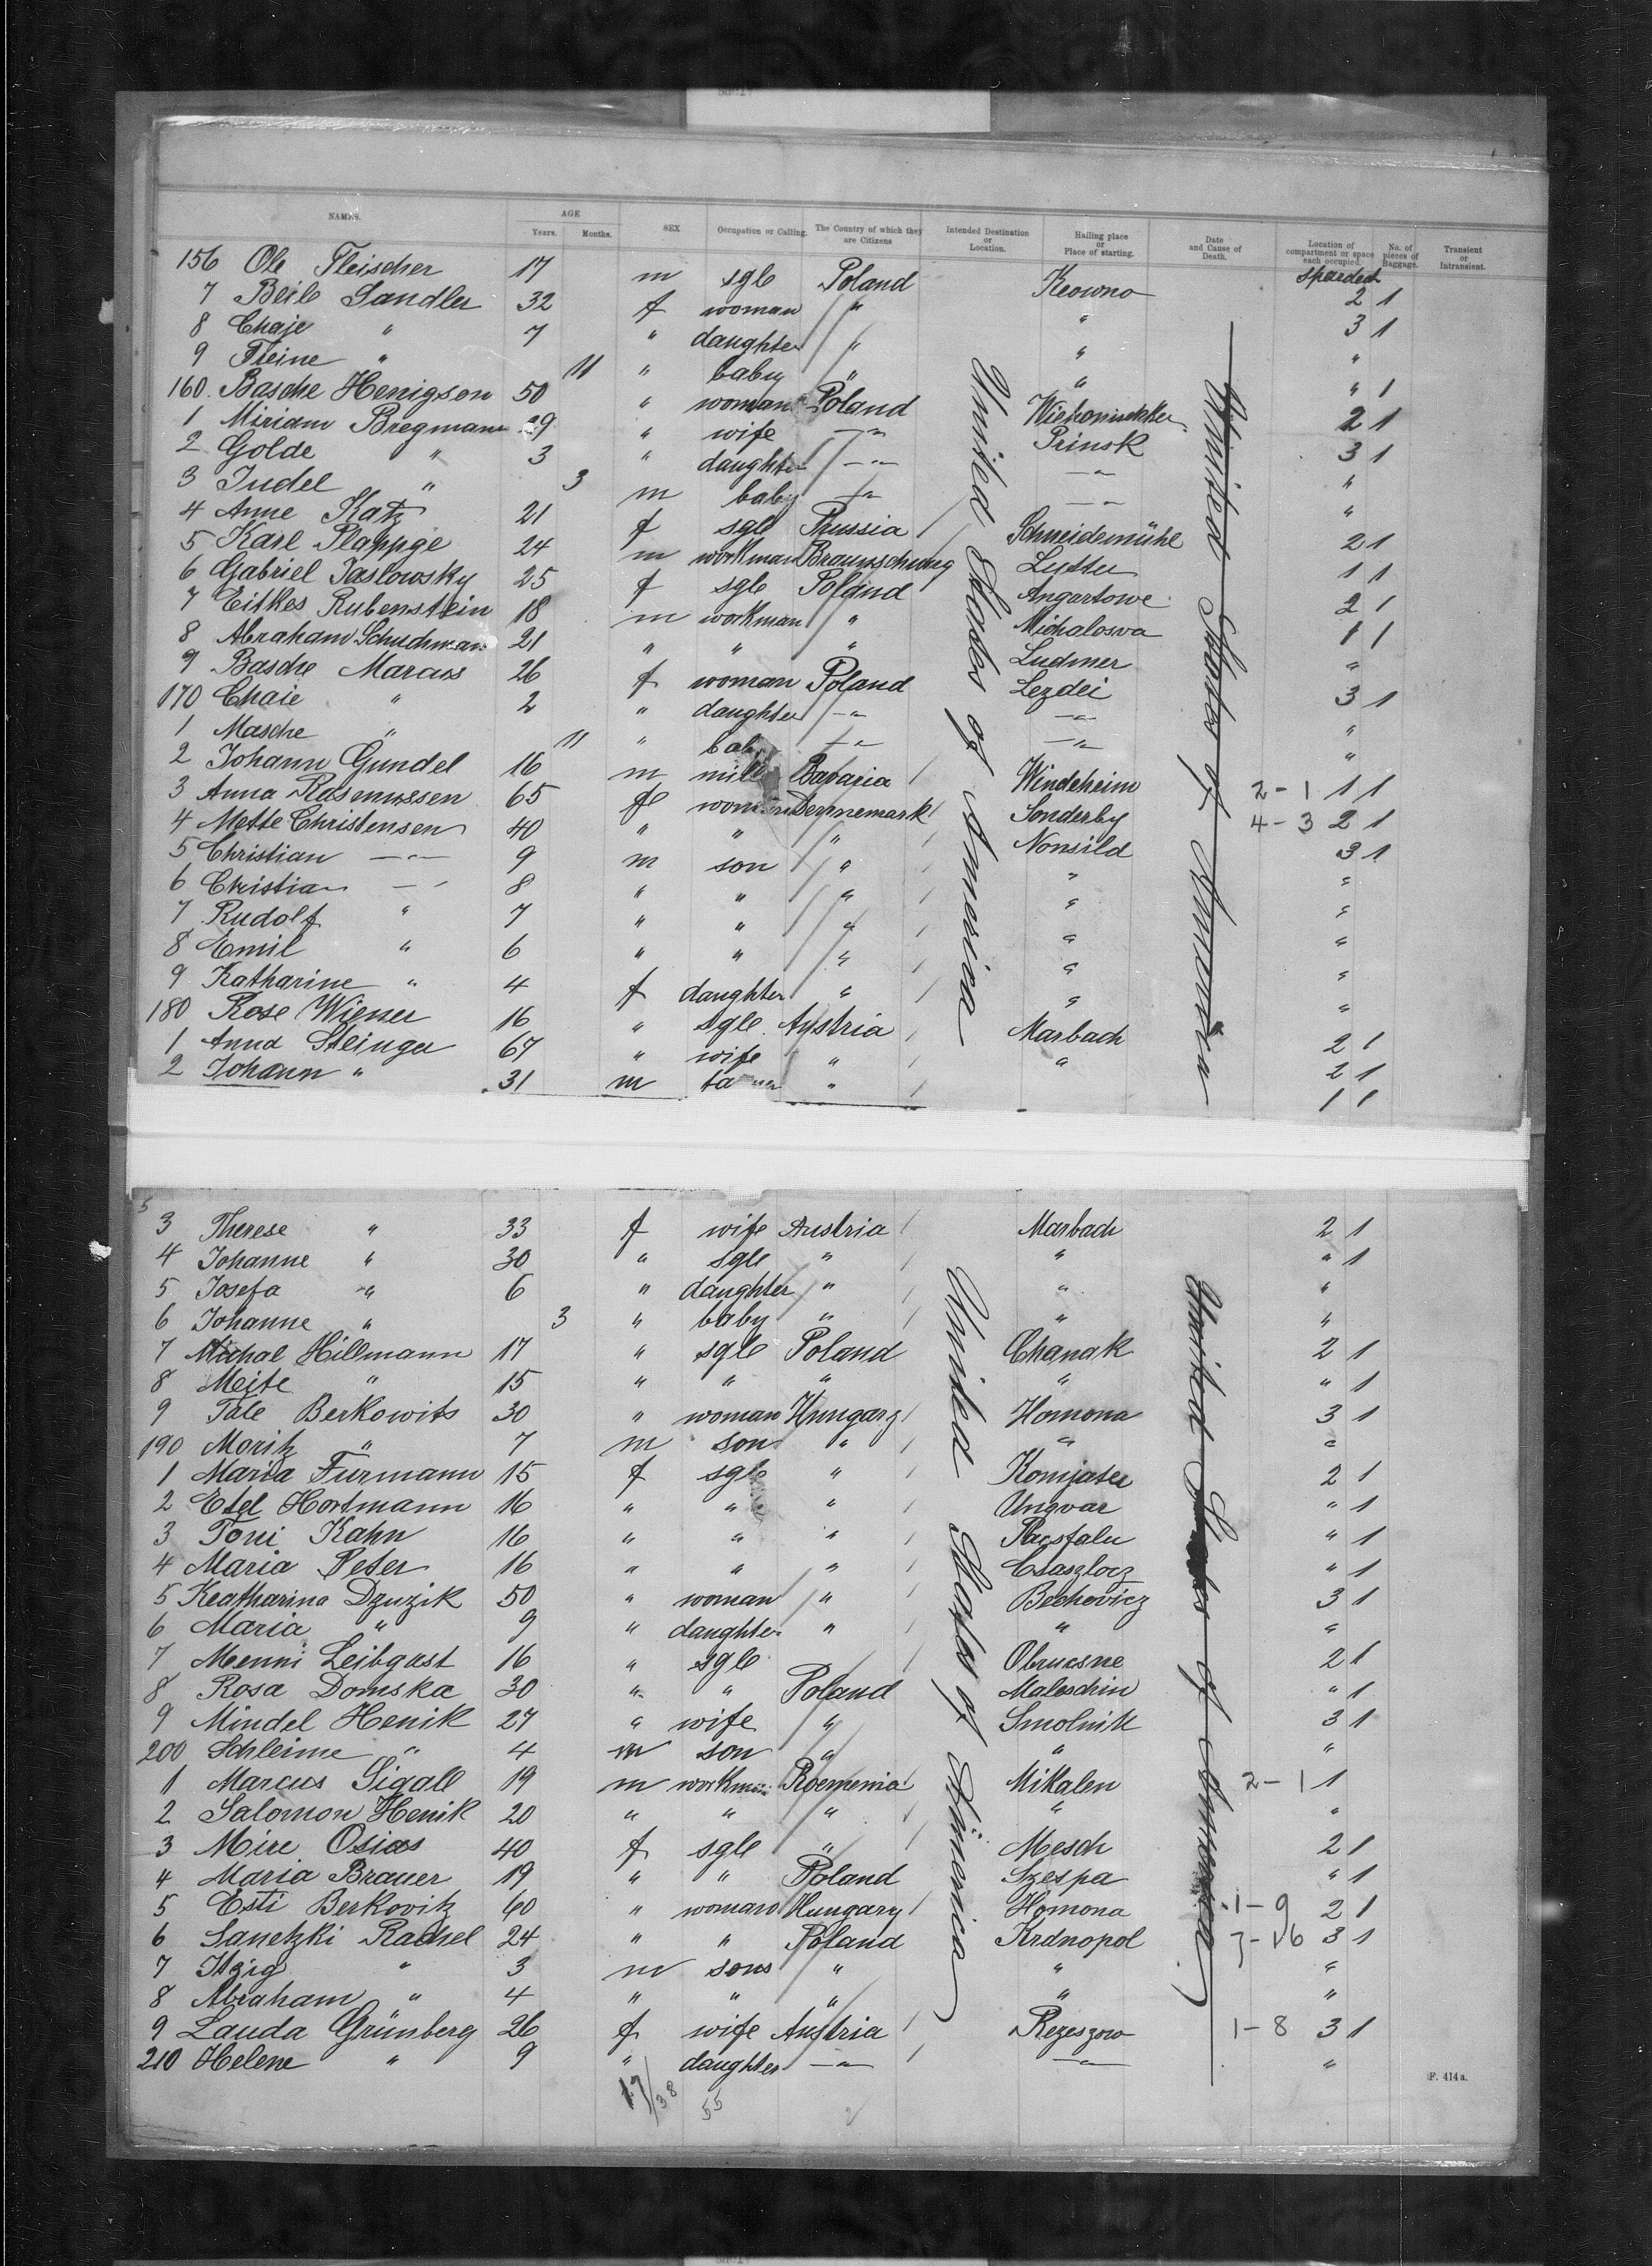 NAMES. AGE Years. Months. SEX Occupation or Calling. The Country of which they are Citizens Intended Destination or Location. Hailing place or Place of starting. Date and Cause of Death. Location of compartment or space each occupied. No. of pieces of Baggage. Transient or Intransient.
156 Ole Fleischer 17 m sgle Poland Keowno 2 1
7 Beile Sandler 32 f woman " " 3 1
8 Chaje " 7 " daughter " " "
9 Fleine " 11 " baby " " " 1
160 Basche Henigson 50 " woman Poland 2 1
1 Miriam Bregmann 29 " wife —"— Prinsk 3 1
2 Golde " 3 " daughter —"— —"— "
3 Judel " 3 m baby —"— —"— "
4 Anne Katz 21 f sgle Prussia Schneidemühl 2 1
5 Karl Plappge 24 m workman Braunschweig Lutter 1 1
6 Gabriel Jaslowsky 25 f sgle Poland Angartowe 2 1
7 Eitkes Rubenstein 18 m workman " Michalosva 1 1
8 Abraham Schuchman 21 " " " Ludmer "
9 Basche Marcus 26 f woman Poland Lezdei 3 1
170 Chaie " 2 " daughter —"— —"— "
1 Masche " 11 " baby —"— —"— "
2 Johann Gundel 16 m Bavaria Windeheim 2-1 1 1
3 Anna Rasmussen 65 f woman Dennemark Sonderby 4-3 2 1
4 Mette Christensen 40 " " " Nonsild 3 1
5 Christian —"— 9 m son " " "
6 Christian —"— 8 " " " " "
7 Rudolf " 7 " " " " "
8 Emil " 6 " " " " "
9 Katharine " 4 f daughter " " "
180 Rose Wiener 16 " sgle Austria Marbach 2 1
1 Anna Steinger 67 " wife " " 2 1
2 Johann " 31 m " 1 1
United States of America
United States of America
3 Therese " 33 f wife Austria Marbach 2 1
4 Johanne " 30 " sgle " " " 1
5 Josefa " 6 " daughter " " "
6 Johanne " 3 " baby " " "
7 Michal Hillmann 17 " sgle Poland Chanak 2 1
8 Meite " 15 " " " " " 1
9 Tale Berkowits 30 " woman Hungary Homona 3 1
190 Moritz " 7 m son " " "
1 Maria Furmann 15 f sgle " Komjatee 2 1
2 Etel Hortmann 16 " " " Ungvar " 1
3 Toni Kahn 16 " " " Pacsfalu " 1
4 Maria Peter 16 " " " Csaszlocz " 1
5 Keatharina Dzuzik 50 " woman " Bechovicz 3 1
6 Maria " 9 " daughter " " "
7 Menni Leibgast 16 " sgle Obrucsne 2 1
8 Rosa Domska 30 " " Poland Maleschin " 1
9 Mindel Henik 27 " wife " Smolnik 3 1
200 Schleime " 4 m son " " "
1 Marcus Sigall 19 m workman Roemenia Mikalen 2-1 1
2 Salomon Henik 20 " " " " "
3 Mire Osias 40 f sgle " Mesch 2 1
4 Maria Brauer 19 " " Poland Szespa " 1
5 Esti Berkovitz 60 " woman Hungary Homona 1-9 2 1
6 Sanetzki Rachel 24 " " Poland Krdnopol 7-16 3 1
7 Itzig " 3 m sons " " "
8 Abraham " 4 " " " " "
9 Lauda Grünberg 26 f wife Austria Rezeszow 1-8 3 1
210 Helene " 9 " daughter —"— —"— "
United States of America
United States of America
17/38 55
F. 414a.